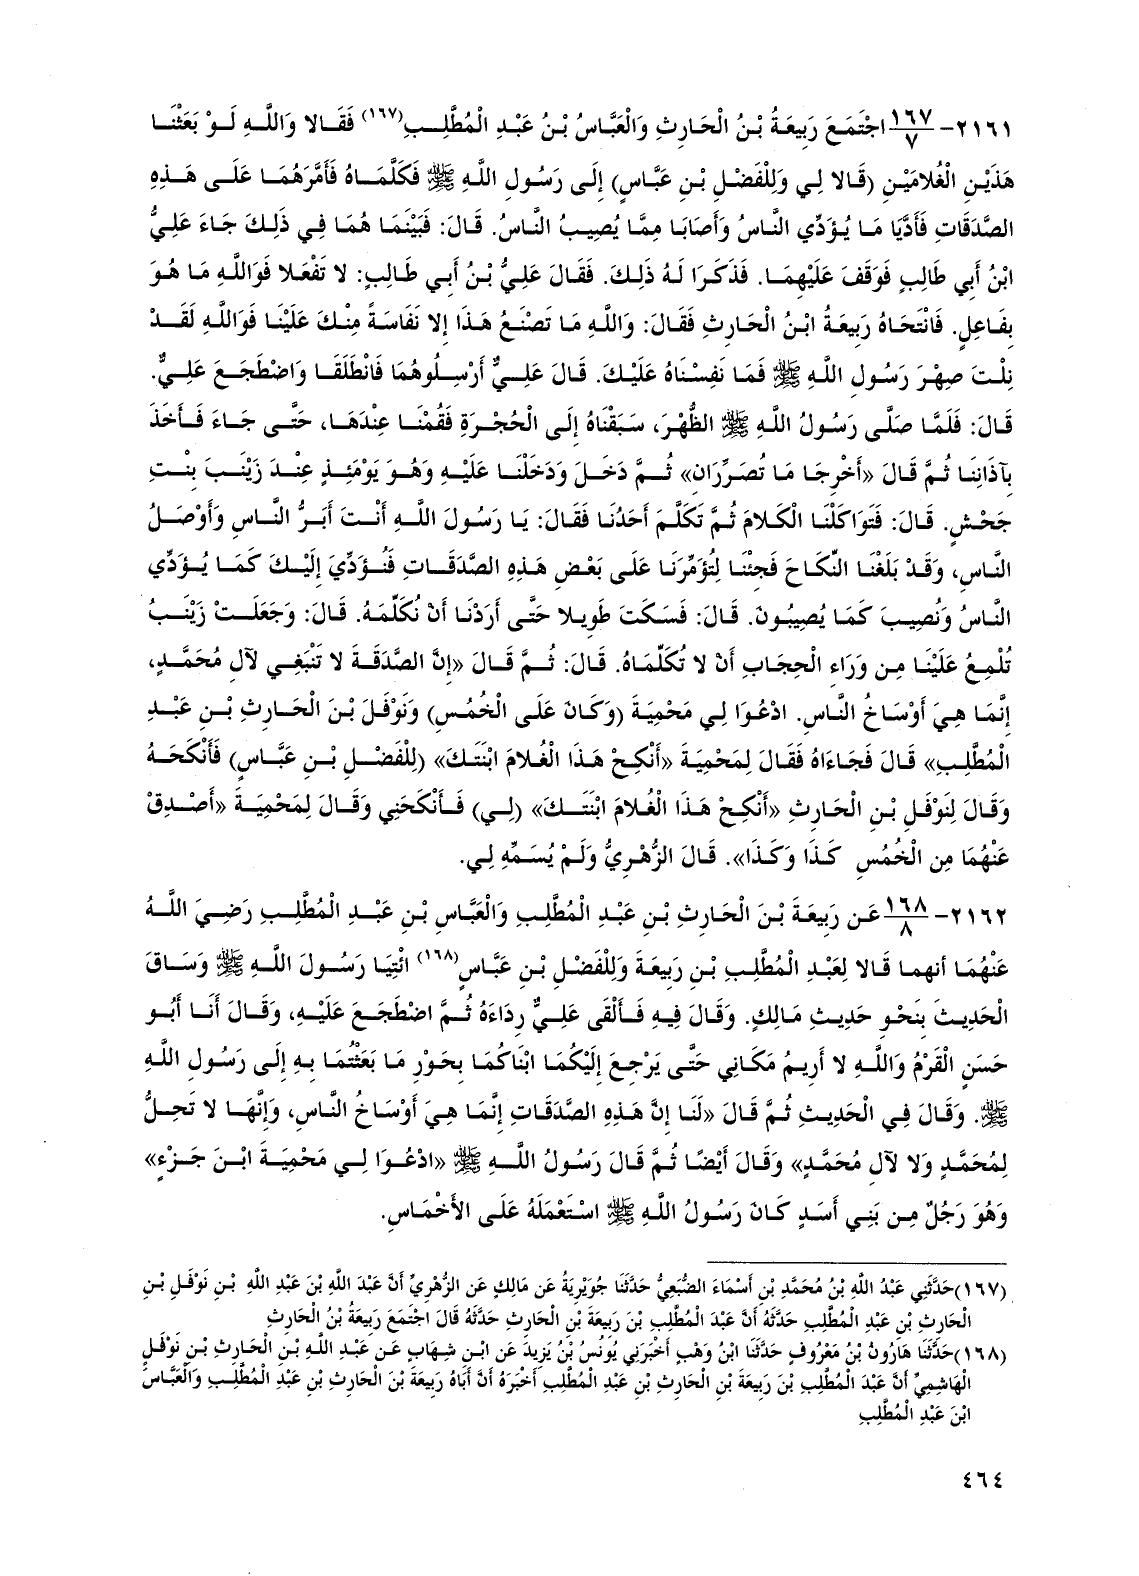 ٢١٦١- ١٦٧/٧ اجْتَمَعَ رَبِيعَةُ بْنُ الْحَارِثِ وَالْعَبَّاسُ بْنُ عَبْدِ الْمُطَّلِبِ(١٦٧) فَقَالا وَاللَّهِ لَوْ بَعَثْنَا
هَذَيْنِ الْغُلامَيْنِ (قَالا لِي وَلِلْفَضْلِ بْنِ عَبَّاسٍ) إِلَى رَسُولِ اللَّهِ ﷺ فَكَلَّمَاهُ فَأَمَّرَهُمَا عَلَى هَذِهِ
الصَّدَقَاتِ فَأَدَّيَا مَا يُؤَدِّي النَّاسُ وَأَصَابَا مِمَّا يُصِيبُ النَّاسُ. قَالَ: فَبَيْنَمَا هُمَا فِي ذَلِكَ جَاءَ عَلِيُّ
ابْنُ أَبِي طَالِبٍ فَوَقَفَ عَلَيْهِمَا. فَذَكَرَا لَهُ ذَلِكَ. فَقَالَ عَلِيُّ بْنُ أَبِي طَالِبٍ: لا تَفْعَلا فَوَاللَّهِ مَا هُوَ
بِفَاعِلٍ. فَانْتَحَاهُ رَبِيعَةُ ابْنُ الْحَارِثِ فَقَالَ: وَاللَّهِ مَا تَصْنَعُ هَذَا إِلا نَفَاسَةً مِنْكَ عَلَيْنَا فَوَاللَّهِ لَقَدْ
نِلْتَ صِهْرَ رَسُولِ اللَّهِ ﷺ فَمَا نَفِسْنَاهُ عَلَيْكَ. قَالَ عَلِيٌّ أَرْسِلُوهُمَا فَانْطَلَقَا وَاضْطَجَعَ عَلِيٌّ.
قَالَ: فَلَمَّا صَلَّى رَسُولُ اللَّهِ ﷺ الظُّهْرَ، سَبَقْنَاهُ إِلَى الْحُجْرَةِ فَقُمْنَا عِنْدَهَا، حَتَّى جَاءَ فَأَخَذَ
بِآذَانِنَا ثُمَّ قَالَ «أَخْرِجَا مَا تُصَرِّرَانِ» ثُمَّ دَخَلَ وَدَخَلْنَا عَلَيْهِ وَهُوَ يَوْمَئِذٍ عِنْدَ زَيْنَبَ بِنْتِ
جَحْشٍ. قَالَ: فَتَوَاكَلْنَا الْكَلامَ ثُمَّ تَكَلَّمَ أَحَدُنَا فَقَالَ: يَا رَسُولَ اللَّهِ أَنْتَ أَبَرُّ النَّاسِ وَأَوْصَلُ
النَّاسِ، وَقَدْ بَلَغْنَا النِّكَاحَ فَجِئْنَا لِتُؤَمِّرَنَا عَلَى بَعْضِ هَذِهِ الصَّدَقَاتِ فَنُؤَدِّيَ إِلَيْكَ كَمَا يُؤَدِّي
النَّاسُ وَنُصِيبَ كَمَا يُصِيبُونَ. قَالَ: فَسَكَتَ طَوِيلا حَتَّى أَرَدْنَا أَنْ نُكَلِّمَهُ. قَالَ: وَجَعَلَتْ زَيْنَبُ
تُلْمِعُ عَلَيْنَا مِن وَرَاءِ الْحِجَابِ أَنْ لا تُكَلِّمَاهُ. قَالَ: ثُمَّ قَالَ «إِنَّ الصَّدَقَةَ لا تَنْبَغِي لآلِ مُحَمَّدٍ،
إِنَّمَا هِيَ أَوْسَاخُ النَّاسِ. ادْعُوَا لِي مَحْمِيَةَ (وَكَانَ عَلَى الْخُمُسِ) وَنَوْفَلَ بْنَ الْحَارِثِ بْنِ عَبْدِ
الْمُطَّلِبِ» قَالَ فَجَاءَاهُ فَقَالَ لِمَحْمِيَةَ «أَنْكِحْ هَذَا الْغُلامَ ابْنَتَكَ» (لِلْفَضْلِ بْنِ عَبَّاسٍ) فَأَنْكَحَهُ
وَقَالَ لِنَوْفَلِ بْنِ الْحَارِثِ «أَنْكِحْ هَذَا الْغُلامَ ابْنَتَكَ» (لِي) فَأَنْكَحَنِي وَقَالَ لِمَحْمِيَةَ «أَصْدِقْ
عَنْهُمَا مِن الْخُمُسِ كَذَا وَكَذَا». قَالَ الزُّهْرِيُّ وَلَمْ يُسَمِّهِ لِي.
٢١٦٢- ١٦٨/٨ عَن رَبِيعَةَ بْنَ الْحَارِثِ بْنِ عَبْدِ الْمُطَّلِبِ وَالْعَبَّاسِ بْنِ عَبْدِ الْمُطَّلِبِ رَضِيَ اللَّهُ
عَنْهُمَا أنهما قَالا لِعَبْدِ الْمُطَّلِبِ بْنِ رَبِيعَةَ وَلِلْفَضْلِ بْنِ عَبَّاسٍ(١٦٨) ائْتِيَا رَسُولَ اللَّهِ ﷺ وَسَاقَ
الْحَدِيثَ بِنَحْوِ حَدِيثِ مَالِكٍ. وَقَالَ فِيهِ فَأَلْقَى عَلِيٌّ رِدَاءَهُ ثُمَّ اضْطَجَعَ عَلَيْهِ، وَقَالَ أَنَا أَبُو
حَسَنٍ الْقَرْمُ وَاللَّهِ لا أَرِيمُ مَكَانِي حَتَّى يَرْجِعَ إِلَيْكُمَا ابْنَاكُمَا بِحَوْرِ مَا بَعَثْتُمَا بِهِ إِلَى رَسُولِ اللَّهِ
ﷺ. وَقَالَ فِي الْحَدِيثِ ثُمَّ قَالَ «لَنَا إِنَّ هَذِهِ الصَّدَقَاتِ إِنَّمَا هِيَ أَوْسَاخُ النَّاسِ، وَإِنَّهَا لا تَحِلُّ
لِمُحَمَّدٍ وَلا لآلِ مُحَمَّدٍ» وَقَالَ أَيْضًا ثُمَّ قَالَ رَسُولُ اللَّهِ ﷺ «ادْعُوَا لِي مَحْمِيَةَ ابْنَ جَزْءٍ»
وَهُوَ رَجُلٌ مِن بَنِي أَسَدٍ كَانَ رَسُولُ اللَّهِ ﷺ اسْتَعْمَلَهُ عَلَى الأَخْمَاسِ.
(١٦٧)حَدَّثَنِي عَبْدُ اللَّهِ بْنُ مُحَمَّدِ بْنِ أَسْمَاءَ الضُّبَعِيُّ حَدَّثَنَا جُوَيْرِيَةُ عَن مَالِكٍ عَن الزُّهْرِيِّ أَنَّ عَبْدَ اللَّهِ بْنَ عَبْدِ اللَّهِ بْنِ نَوْفَلِ بْنِ
الْحَارِثِ بْنِ عَبْدِ الْمُطَّلِبِ حَدَّثَهُ أَنَّ عَبْدَ الْمُطَّلِبِ بْنَ رَبِيعَةَ بْنِ الْحَارِثِ حَدَّثَهُ قَالَ اجْتَمَعَ رَبِيعَةُ بْنُ الْحَارِثِ
(١٦٨)حَدَّثَنَا هَارُونُ بْنُ مَعْرُوفٍ حَدَّثَنَا ابْنُ وَهْبٍ أَخْبَرَنِي يُونُسُ بْنُ يَزِيدَ عَن ابْنِ شِهَابٍ عَن عَبْدِ اللَّهِ بْنِ الْحَارِثِ بْنِ نَوْفَلٍ
الْهَاشِمِيِّ أَنَّ عَبْدَ الْمُطَّلِبِ بْنَ رَبِيعَةَ بْنِ الْحَارِثِ بْنِ عَبْدِ الْمُطَّلِبِ أَخْبَرَهُ أَنَّ أَبَاهُ رَبِيعَةَ بْنَ الْحَارِثِ بْنِ عَبْدِ الْمُطَّلِبِ وَالْعَبَّاسَ
ابْنَ عَبْدِ الْمُطَّلِبِ
٤٦٤